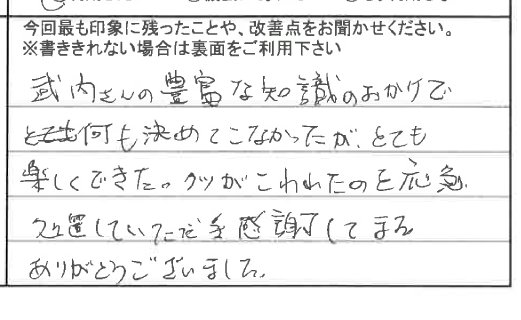 今回最も印象に残ったことや、改善点をお聞かせください。
※書ききれない場合は裏面をご利用下さい
武内さんの豊富な知識のおかげで
何も決めてこなかったが、とても
楽しくできた。クツがこわれたのを応急
処置していただき感謝してます
ありがとうございました。